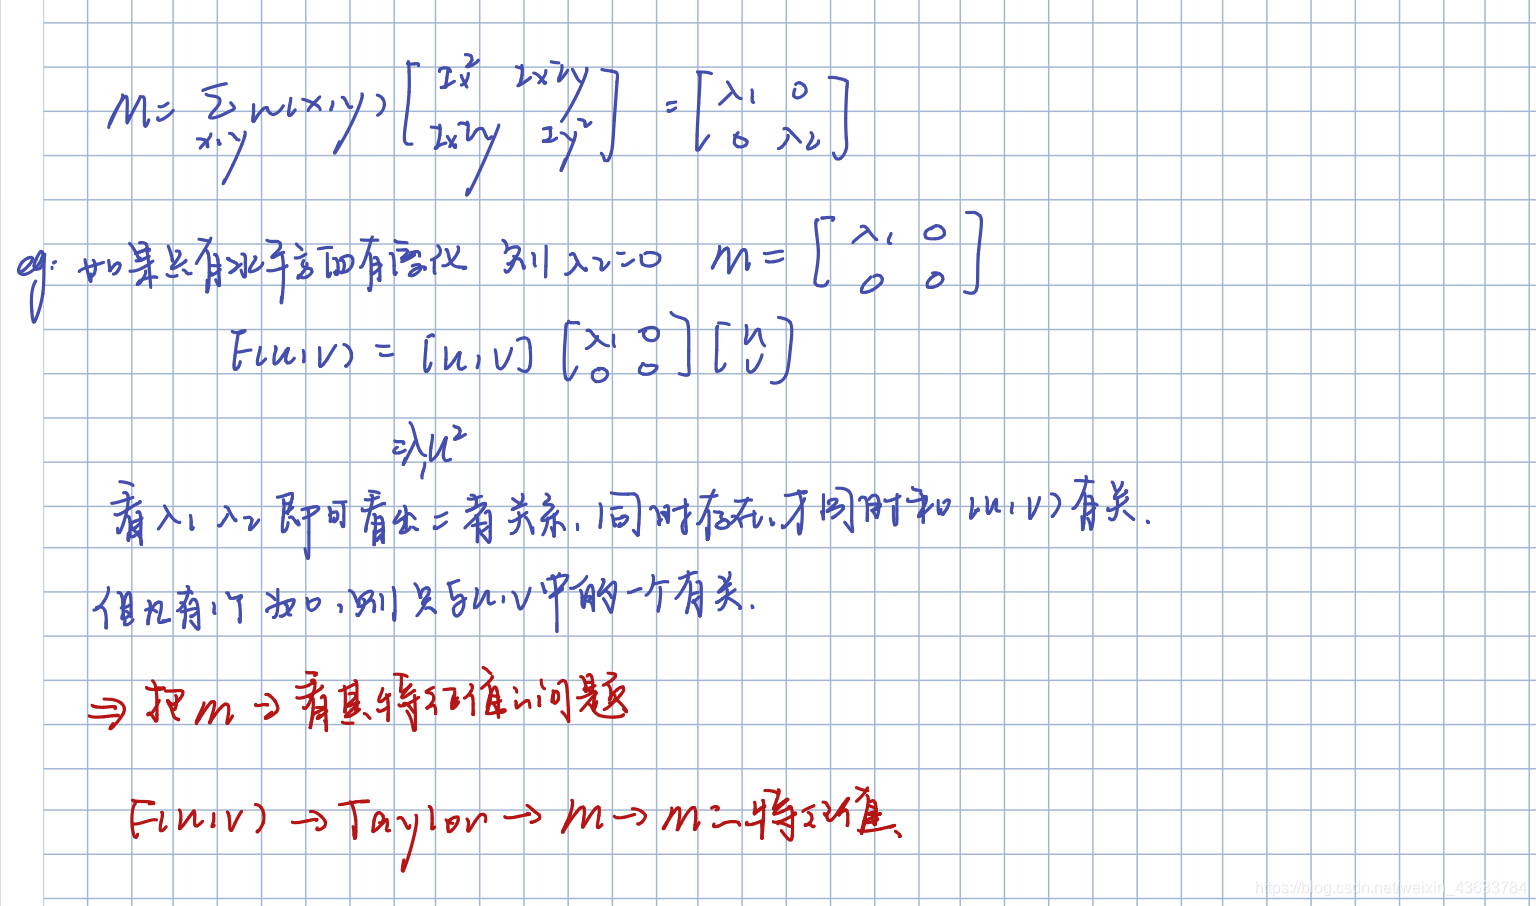 M = Σ w(x,y) [ Ix² IxIy ; IxIy Iy² ] = [ λ1 0 ; 0 λ2 ]
x,y
eg: 如果点有水平方向有变化 则 λ2=0 M = [ λ1 0 ; 0 0 ]
E(u,v) = [u,v] [ λ1 0 ; 0 0 ] [ u ; v ]
=λ1u²
看 λ1 λ2 即可看出二者关系, 同时存在, 才同时和 (u,v) 有关.
但凡有1个为0, 则只与u,v中的一个有关.
⇒ 把 M → 看其特征值的问题
E(u,v) → Taylor → M → M 的特征值
https://blog.csdn.net/weixin_43633784